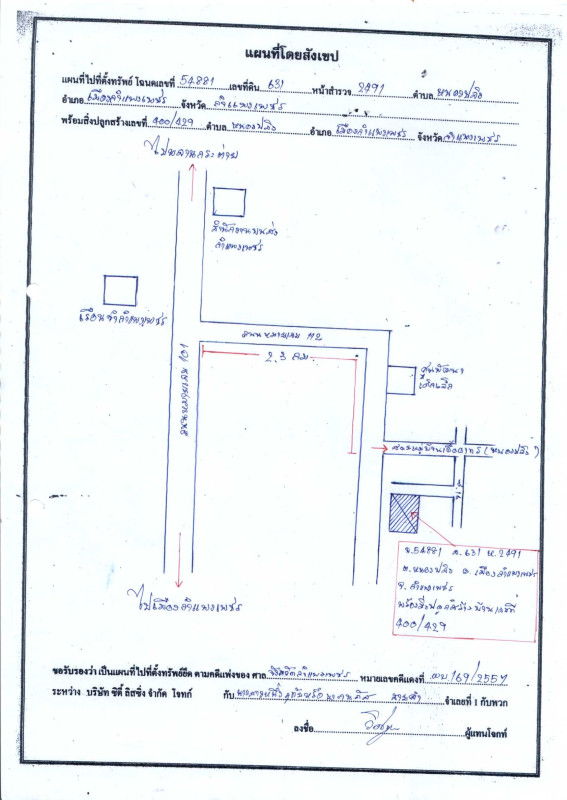 แผนที่โดยสังเขป
แผนที่ไปที่ตั้งทรัพย์ โฉนดเลขที่ 54881 เลขที่ดิน 631 หน้าสำรวจ 2491 ตำบล หนองปลิง
อำเภอ เมืองกำแพงเพชร จังหวัด กำแพงเพชร
พร้อมสิ่งปลูกสร้างเลขที่ 400/429 ตำบล หนองปลิง อำเภอ เมืองกำแพงเพชร จังหวัด กำแพงเพชร
ไปพรานกระต่าย
สำนักงานขนส่ง
กำแพงเพชร
เรือนจำกำแพงเพชร
ถนนหมายเลข 112
2.3 กม.
ถนนหมายเลข 101
ศูนย์พัฒนา
เด็กเล็ก
ซอยหมู่บ้านเอื้ออาทร (หนองปลิง)
ฉ.54881 ล.631 ห.2491
ต.หนองปลิง อ.เมืองกำแพงเพชร
จ.กำแพงเพชร
พร้อมสิ่งปลูกสร้าง บ้านเลขที่
400/429
ไปเมืองกำแพงเพชร
ขอรับรองว่า เป็นแผนที่ไปที่ตั้งทรัพย์ยึด ตามคดีแพ่งของ ศาล จังหวัดกำแพงเพชร หมายเลขคดีแดงที่ ผบ.169/2557
ระหว่าง บริษัท ซิตี้ ลิสซิ่ง จำกัด โจทก์ กับ จำเลยที่ 1 กับพวก
ลงชื่อ ผู้แทนโจทก์